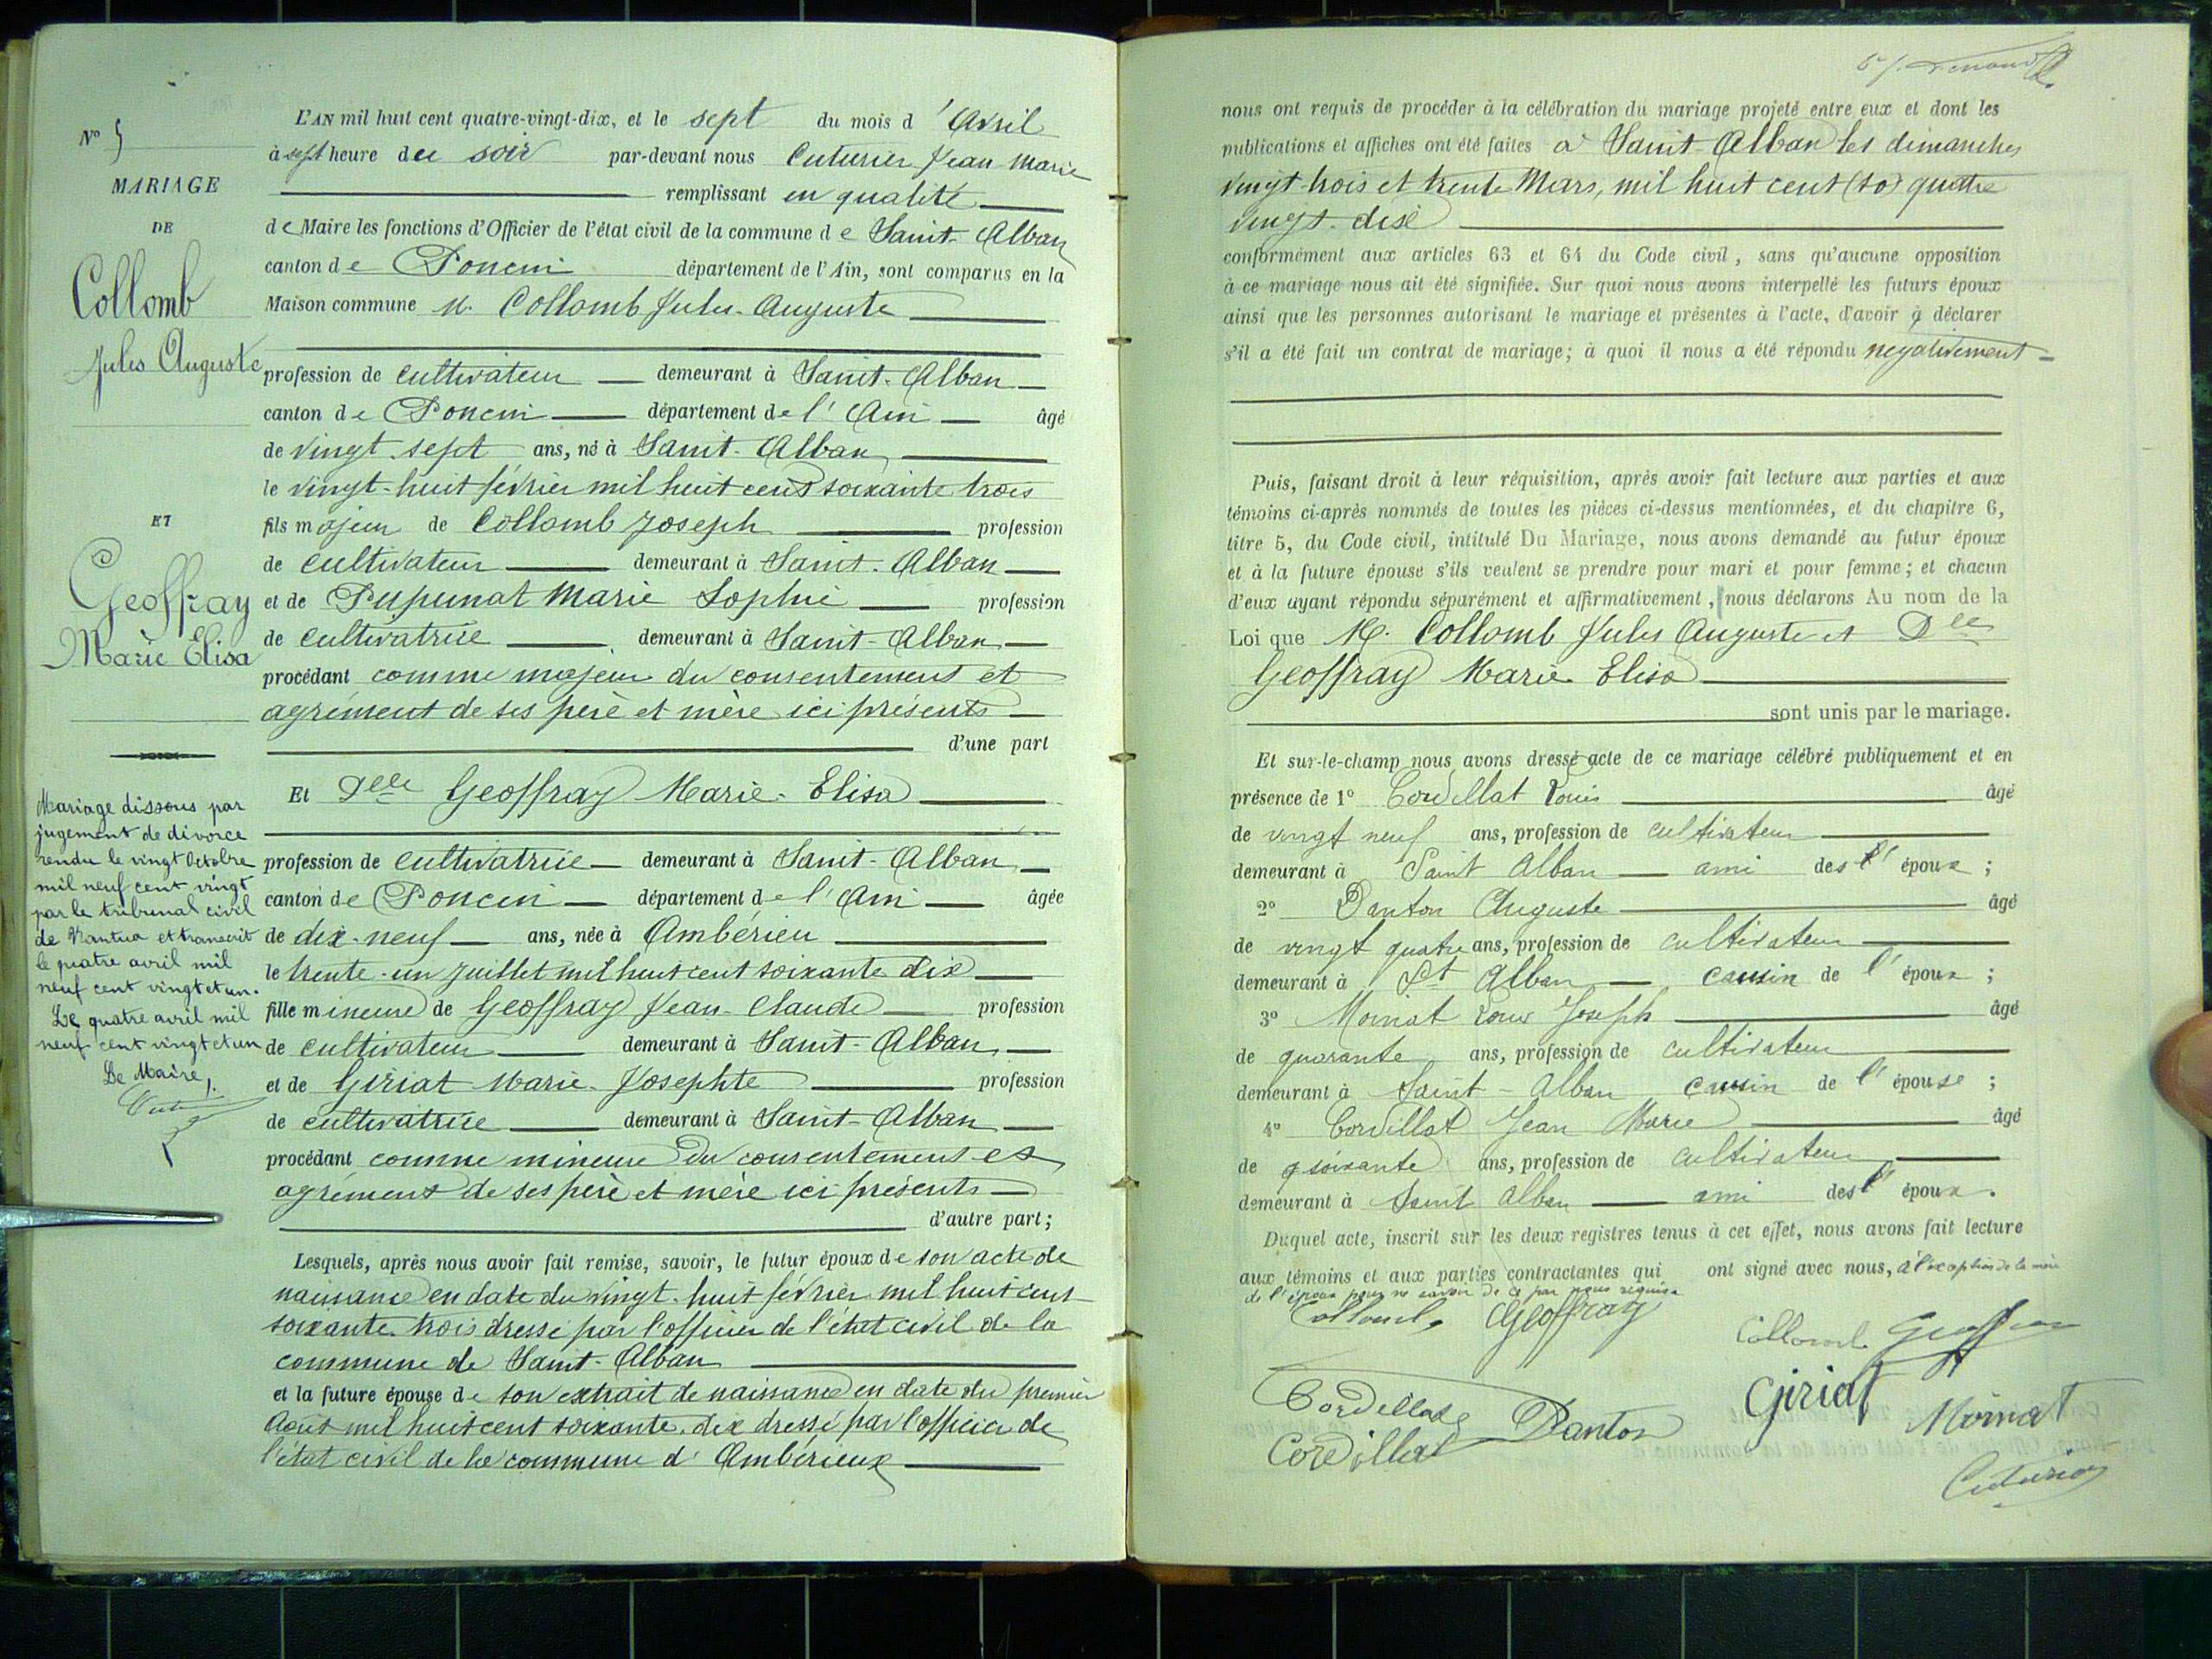 N° 5
MARIAGE
DE
Collomb
Jules Auguste
ET
Geoffray
Marie Elisa
Mariage dissous par
jugement de divorce
rendu le vingt Octobre
mil neuf cent vingt
par le tribunal civil
de Nantua et transcrit
le quatre avril mil
neuf cent vingt et un.
Le quatre avril mil
neuf cent vingt et un
Le Maire,
L'AN mil huit cent quatre-vingt-dix, et le sept du mois d'Avril
à sept heure du soir par-devant nous Cuturier Jean Marie
remplissant en qualité
de Maire les fonctions d'Officier de l'état civil de la commune de Saint-Alban
canton de Poncin département de l'Ain, sont comparus en la
Maison commune M. Collomb Jules-Auguste
profession de cultivateur demeurant à Saint-Alban
canton de Poncin département de l'Ain âgé
de vingt-sept ans, né à Saint-Alban
le vingt-huit février mil huit cent soixante trois
fils majeur de Collomb Joseph profession
de cultivateur demeurant à Saint-Alban
et de Pupunat Marie Sophie profession
de cultivatrice demeurant à Saint-Alban
procédant comme majeur du consentement et
agrément de ses père et mère ici présents
d'une part
Et Delle Geoffray Marie-Elisa
profession de cultivatrice demeurant à Saint-Alban
canton de Poncin département de l'Ain âgée
de dix-neuf ans, née à Ambérieu
le trente-un juillet mil huit cent soixante dix
fille mineure de Geoffray Jean-Claude profession
de cultivateur demeurant à Saint-Alban
et de Giriat Marie-Josephte profession
de cultivatrice demeurant à Saint-Alban
procédant comme mineure du consentement et
agrément de ses père et mère ici présents
d'autre part;
Lesquels, après nous avoir fait remise, savoir, le futur époux de son acte de
naissance en date du vingt-huit février mil huit cent
soixante trois dressé par l'officier de l'état civil de la
commune de Saint-Alban
et la future épouse de son extrait de naissance en date du premier
Août mil huit cent soixante-dix dressé par l'officier de
l'état civil de la commune d'Ambérieux
nous ont requis de procéder à la célébration du mariage projeté entre eux et dont les
publications et affiches ont été faites à Saint-Alban les dimanches
vingt-trois et trente Mars, mil huit cent (so) quatre
vingt-dix
conformément aux articles 63 et 64 du Code civil, sans qu'aucune opposition
à ce mariage nous ait été signifiée. Sur quoi nous avons interpellé les futurs époux
ainsi que les personnes autorisant le mariage et présentes à l'acte, d'avoir à déclarer
s'il a été fait un contrat de mariage; à quoi il nous a été répondu négativement
Puis, faisant droit à leur réquisition, après avoir fait lecture aux parties et aux
témoins ci-après nommés de toutes les pièces ci-dessus mentionnées, et du chapitre 6,
titre 5, du Code civil, intitulé Du Mariage, nous avons demandé au futur époux
et à la future épouse s'ils veulent se prendre pour mari et pour femme; et chacun
d'eux ayant répondu séparément et affirmativement, nous déclarons Au nom de la
Loi que M. Collomb Jules Auguste et Delle
Geoffray Marie Elisa
sont unis par le mariage.
Et sur-le-champ nous avons dressé acte de ce mariage célébré publiquement et en
présence de 1° Cordillat Louis âgé
de vingt neuf ans, profession de cultivateur
demeurant à Saint Alban ami de l'époux;
2° Danton Auguste âgé
de vingt quatre ans, profession de cultivateur
demeurant à St Alban cousin de l'époux;
3° Moinat Louis Joseph âgé
de quarante ans, profession de cultivateur
demeurant à Saint-Alban cousin de l'épouse;
4° Cordillat Jean Marie âgé
de soixante ans, profession de cultivateur
demeurant à Saint Alban ami de l'époux.
Duquel acte, inscrit sur les deux registres tenus à cet effet, nous avons fait lecture
aux témoins et aux parties contractantes qui ont signé avec nous, à l'exception de la mère
de l'époux pour ne savoir de ce par nous requise
Collomb Geoffray
Collomb Geoffray
Cordillat Danton Giriat Moinat
Cordillat
Cuturier